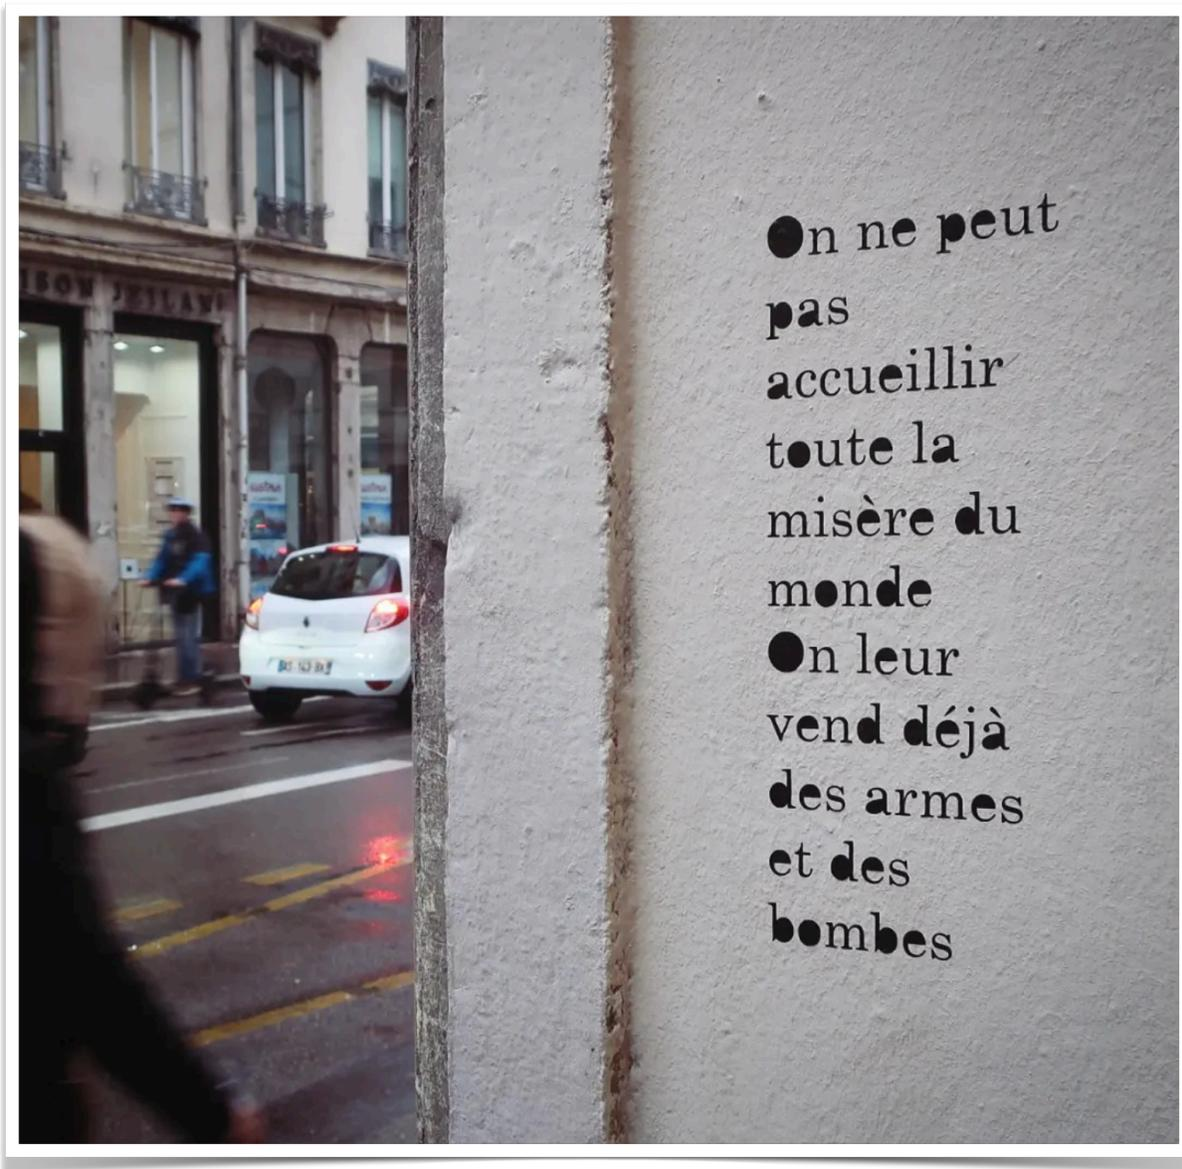 On ne peut
pas
accueillir
toute la
misère du
monde
On leur
vend déjà
des armes
et des
bombes